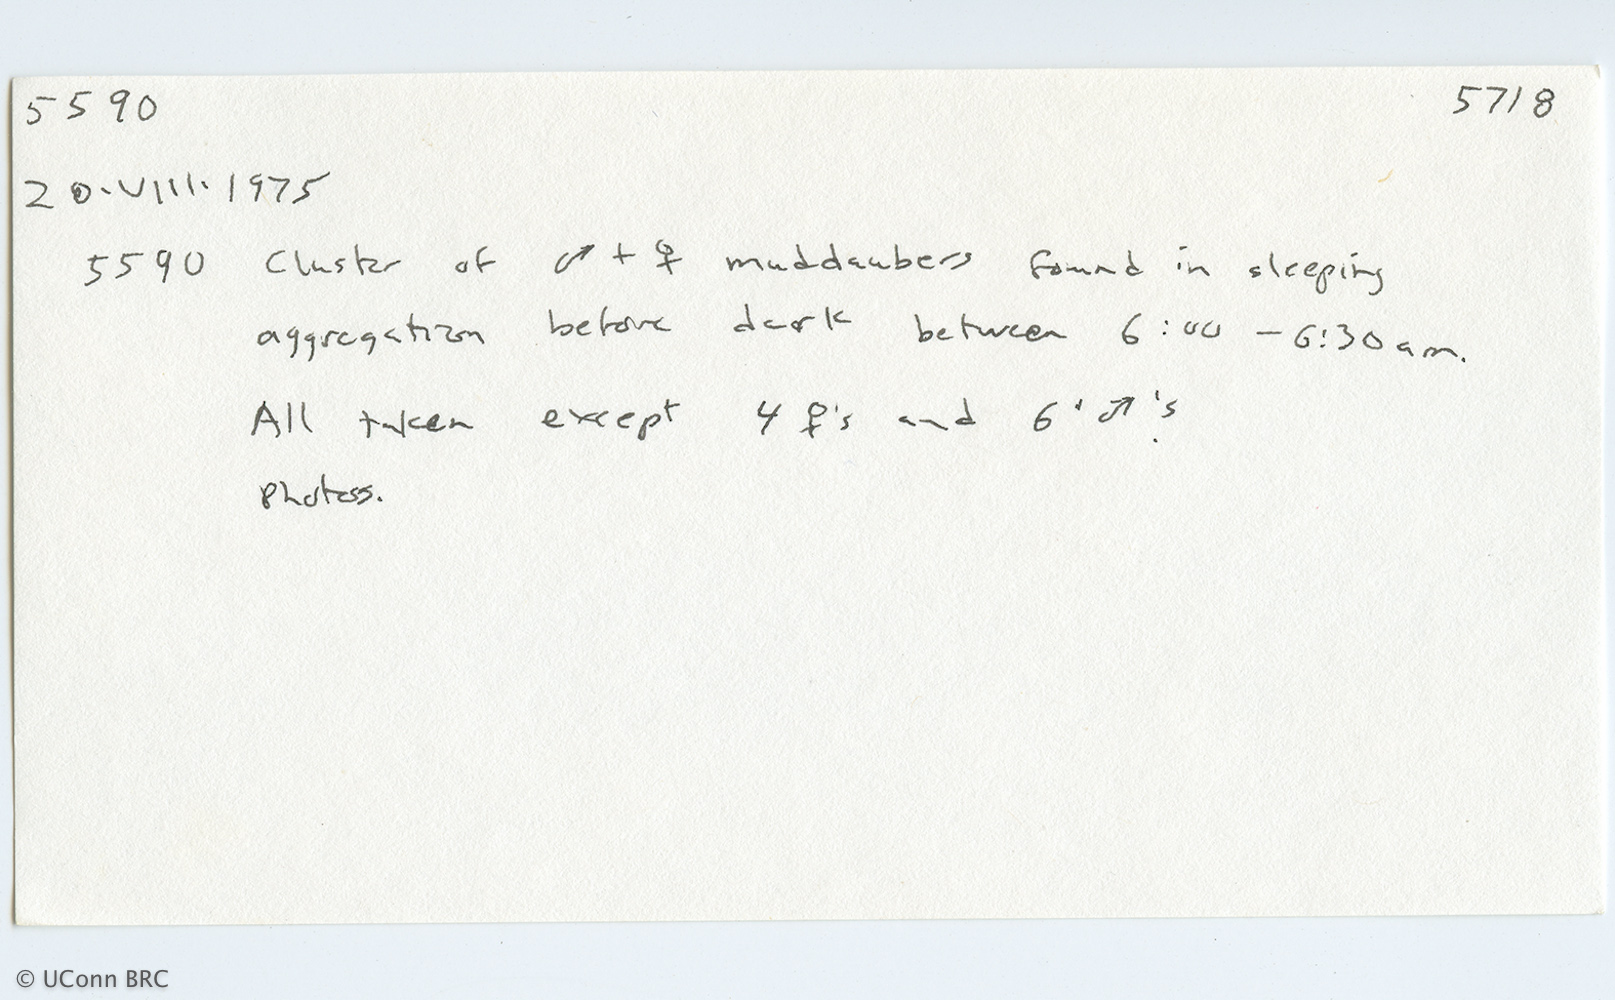 5590 5718
20.VIII.1975
5590 Cluster of ♂ + ♀ muddaubers found in sleeping
aggregation before dark between 6:00 - 6:30 am.
All taken except 4 ♀'s and 6 ♂'s.
Photoss.
© UConn BRC